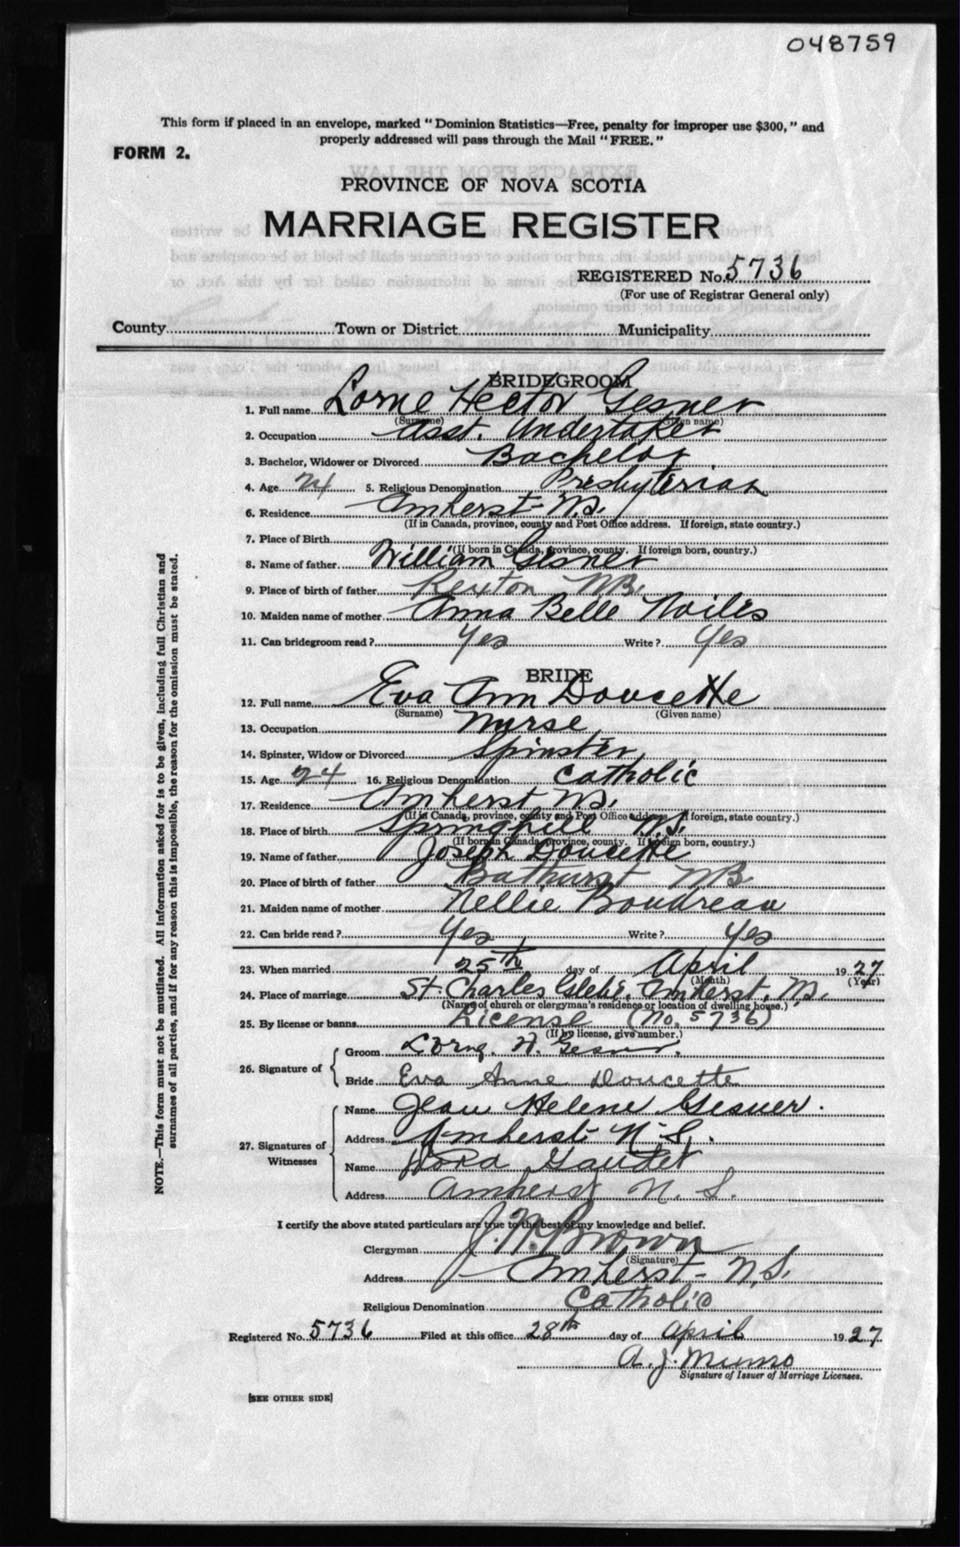 048759
This form if placed in an envelope, marked "Dominion Statistics—Free, penalty for improper use $300," and
properly addressed will pass through the Mail "FREE."
FORM 2.
PROVINCE OF NOVA SCOTIA
MARRIAGE REGISTER
REGISTERED No. 5736
(For use of Registrar General only)
County Town or District Municipality
BRIDEGROOM
1. Full name Lorne Hector Gesner
(Surname) (Given name)
2. Occupation Asst. Undertaker
3. Bachelor, Widower or Divorced Bachelor
4. Age 24 5. Religious Denomination Presbyterian
6. Residence Amherst N.S.
(If in Canada, province, county and Post Office address. If foreign, state country.)
7. Place of Birth
(If born in Canada, province, county. If foreign born, country.)
8. Name of father William Gesner
9. Place of birth of father Rexton NB.
10. Maiden name of mother Anna Belle Noiles
11. Can bridegroom read? Yes Write? Yes
BRIDE
12. Full name Eva Ann Doucette
(Surname) (Given name)
13. Occupation Nurse
14. Spinster, Widow or Divorced Spinster
15. Age 24 16. Religious Denomination Catholic
17. Residence Amherst NS.
(If in Canada, province, county and Post Office address. If foreign, state country.)
18. Place of birth Springhill N.S.
(If born in Canada, province, county. If foreign born, country.)
19. Name of father Joseph Doucette
20. Place of birth of father Bathurst NB.
21. Maiden name of mother Nellie Boudreau
22. Can bride read? Yes Write? Yes
23. When married 25th day of April 1927
(Month) (Year)
24. Place of marriage St. Charles Glebe, Amherst, N.S.
(Name of church or clergyman's residence or location of dwelling house.)
25. By license or banns License (No. 5736)
(If by license, give number.)
26. Signature of
Groom Lorne H. Gesner.
Bride Eva Anne Doucette
27. Signatures of Witnesses
Name Jean Helene Gesner.
Address Amherst N.S.
Name Dora Gaudet
Address Amherst N. S.
I certify the above stated particulars are true to the best of my knowledge and belief.
Clergyman J. N. Brown
(Signature)
Address Amherst - N.S.
Religious Denomination Catholic
Registered No. 5736 Filed at this office 28th day of April 1927
A. J. Munro
Signature of Issuer of Marriage Licenses.
[SEE OTHER SIDE]
NOTE.—This form must not be mutilated. All information asked for is to be given, including full Christian and
surnames of all parties, and if for any reason this is impossible, the reason for the omission must be stated.